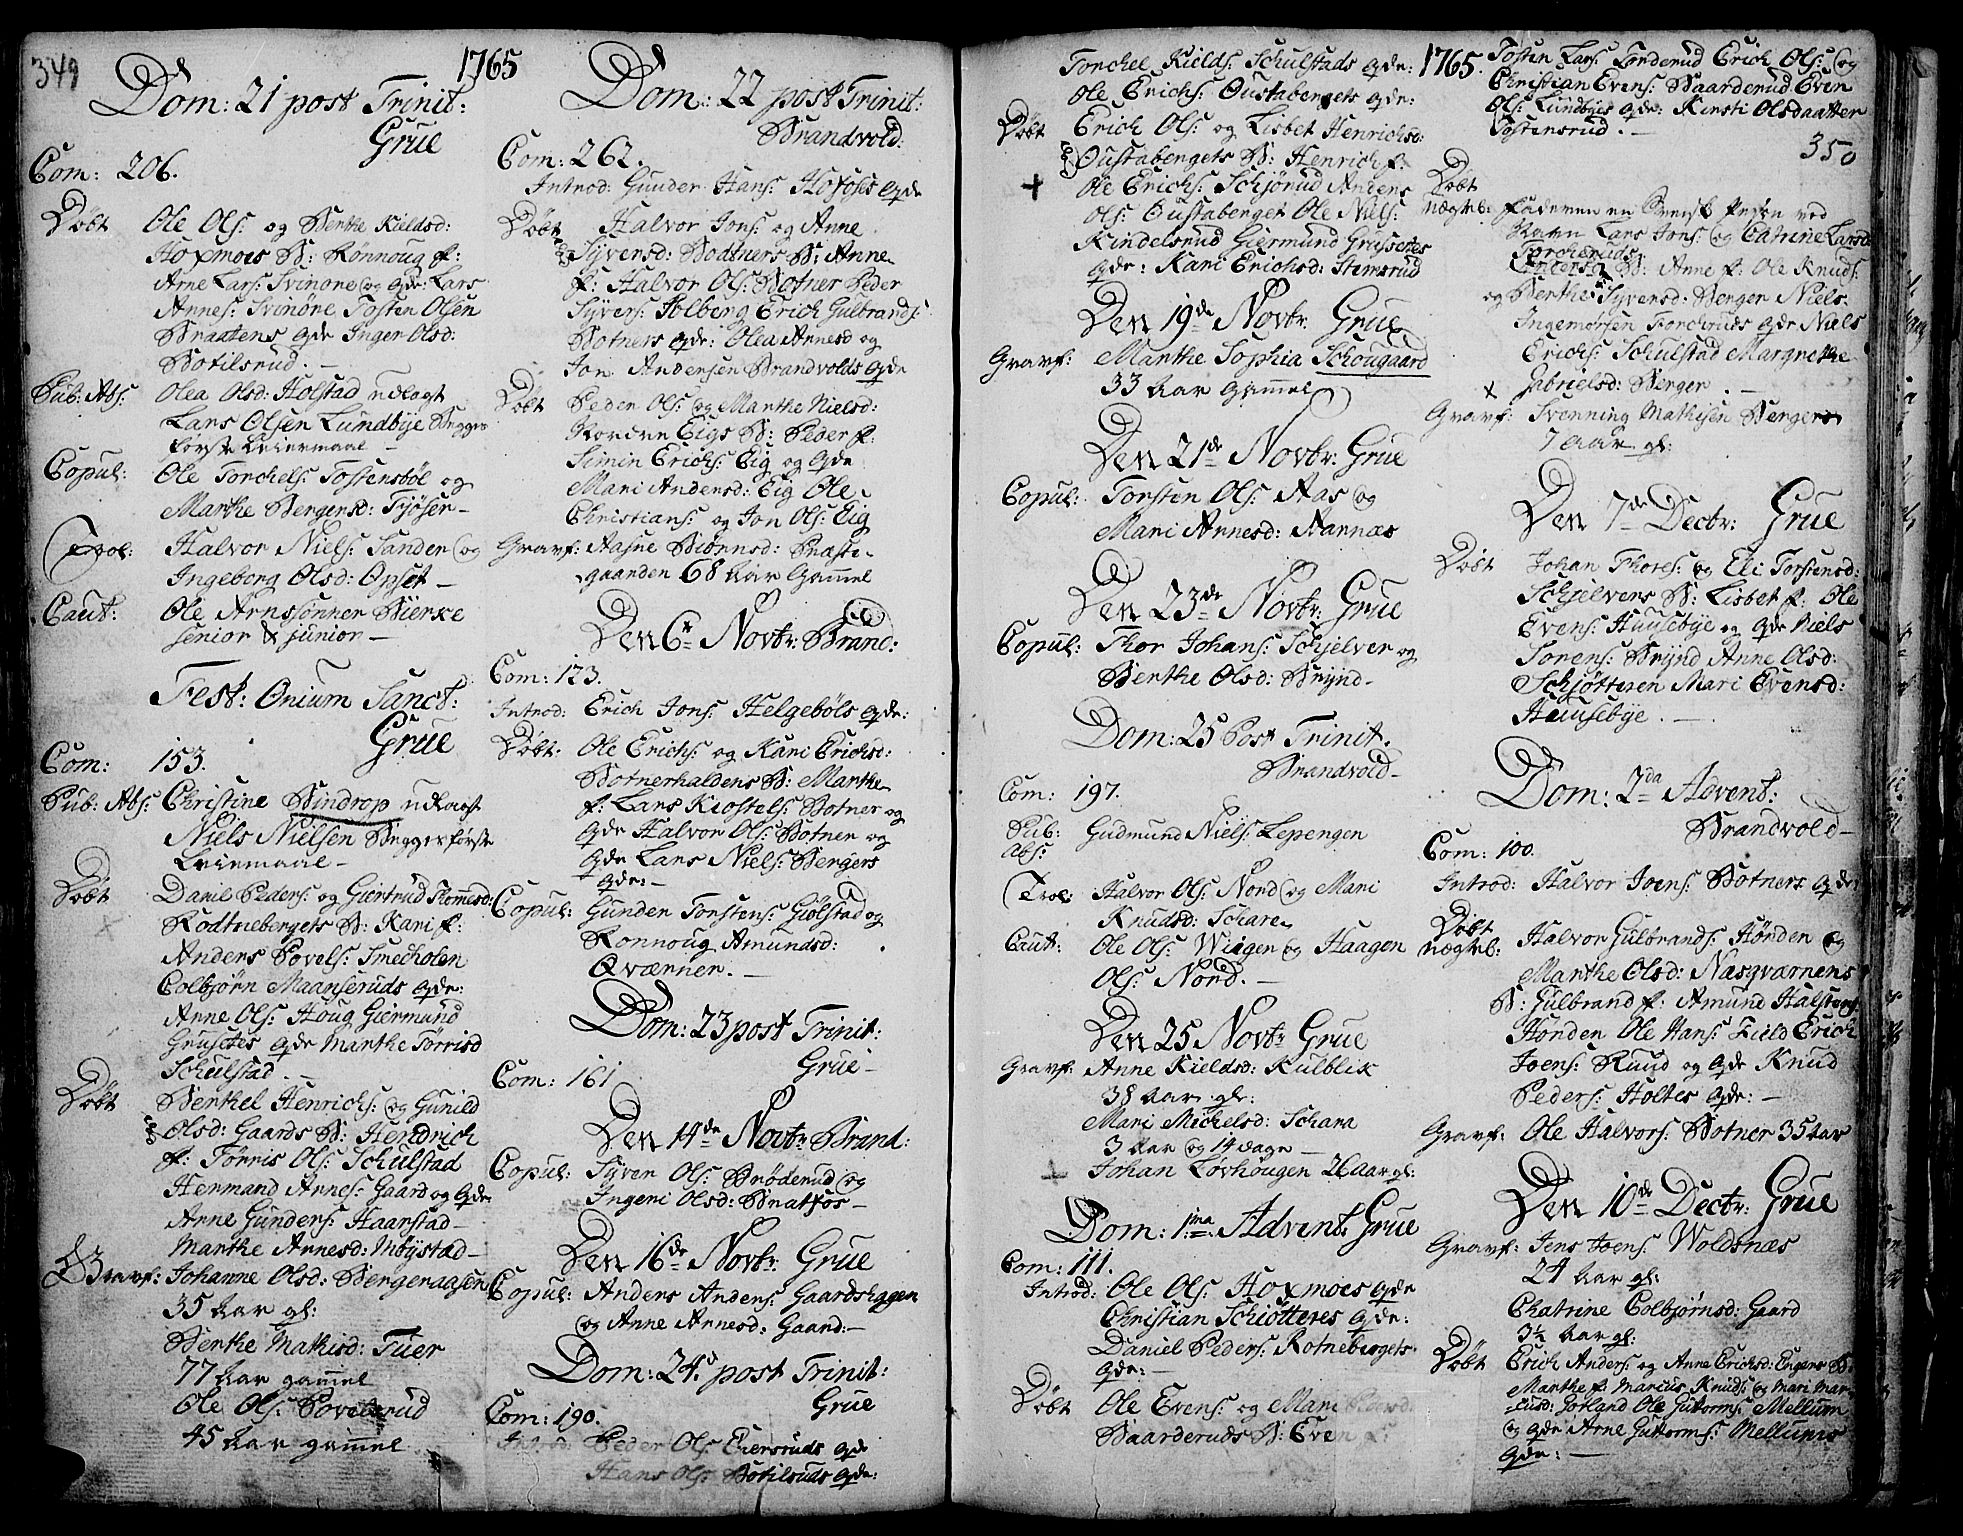 349
1765
Dom: 21 post Trinit:
Grüe
Com: 206.
Döbt Ole Ols: og Berthe Kieldsd:
Hoxmoes B: Rönnoug f:
Arne Lars: Svinöne og Qde: Lars
Annes: Svinöne Tosten Olsen
Braatens Qde Inger Olsd:
Botilsrud. —
Pub: Abs: Olea Olsd: Holstad udlagt
Lars Olsen Lundbye Begges
första Leiermaal —
Copul: Ole Torchels: Tostensböl og
Marthe Bergersd: Työser —
Trol: Halvor Niels: Sanden og
Ingeborg Olsd: Opset —
Caut: Ole Arnssönner Bierke
senior & junior —
Fest: Onium Sanct:
Grüe
Com: 153.
Pub: Abs: Christine Bindrop udlagt
Niels Nielsen Begges förste
Leiermaal —
Döbt Daniel Peders: og Giertrud Thomesd:
Rodtnebergets B: Kari f:
Anders Povels: Smecholen
Colbjörn Maanseruds Qde:
Anne Ols: Houg Giermund
Grusetes Qde Marthe Törrisd
Schulstad. —
Döbt Berthel Henrichs: og Gunild
Olsd: Gaards B: Hendrich
f: Törris Ols: Schulstad
Hermand Arnes: Gaard og Qde
Anne Gunders: Haarstad —
Marthe Arnesd: Möystad —
Gravf: Johanne Olsd: Bergeraasen
35 Aar gl:
Berthe Mathisd: Füer
77 Aar gammel
Ole Ols: Povelsrud
45 Aar gammel
Dom: 22 post Trinit:
Brandvold:
Com: 262.
Introd: Gunder Hans: Hofoses Qde
Döbt Halvor Jons: og Anne
Syversd: Bodtners B: Anne
f: Halvor Ols: Botner Peder
Syvers: Solberg Erich Gulbrands:
Botners Qde: Olea Arnesd og
Jon Andersen Brandvolds Qde
Döbt Peder Ols: og Marthe Nielsd:
Nordre Eigs B: Peder f:
Simin Erichs: Eig og Qde
Mari Andersd: Eig Ole
Christians: og Jon Ols: Eig
Gravf: Aasne Biörnsd: Præste-
gaarden 68 Aar Gammel
Den 6te Novbr: Brand:
Com: 123.
Introd: Erich Jons: Helgeböls Qde:
Döbt: Ole Erichs: og Kari Erichsd:
Botnerhaldens B: Marthe
f: Lars Kiostels: Botner og
Qde Halvor Ols: Botner og
Qde Lars Niels: Bergers
Qde: —
Copul: Gunder Torstens: Giölstad og
Ronnoug Amundsd:
Qværnen. —
Dom: 23 post Trinit:
Grüe —
Com: 161
Den 14de Novbr: Brand:
Copul: Syver Ols: Bröderud og
Ingeri Olsd: Bratfos —
Den 16de Novbr: Grüe
Copul: Anders Anders: Gaardshagen
og Anne Arnesd: Gaard: —
Dom: 24: post Trinit:
Grüe
Com: 190.
Introd: Peder Ols: Eiersruds Qde
Hans Ols: Botilsruds Qde:
1765.
Torchel Kields: Schulstads Qde:
Ole Erichs: Gustabergets Qde:
Döbt Erich Ols: og Lisbet Henrichsd:
Gustabergets B: Henrich f:
Ole Erichs: Schjörud Anders
Ols: Gustaberget Ole Niels:
Kindelsrud Giermund Grusetes
Qde: Kari Erichsd: Stemsrud
Den 19de Novbr: Grüe
Gravf: Marthe Sophia Schougaard
33 Aar gammel
Den 21de Novbr: Grüe
Copul: Torsten Ols: Aas og
Mari Arnesd: Aarnæs
Den 23de Novbr: Grüe
Copul: Thor Johans: Schjelver og
Berthe Olsd: Brynd —
Dom: 25 Post Trinit.
Brandvold —
Com: 197.
Pub: Abs: Gudmund Niels: Lepengen
Trol: Halvor Ols: Nord og Mari
Knudsd: Schare
Caut: Ole Ols: Wiigen og Haagen
Ols: Nord. —
Den 25 Novbr Grüe
Gravf: Anne Kieldsd: Kulblik
38 Aar gl:
Mari Michelsd: Schara
3 Aar og 14 dage —
Johan Lövhöugen 26 Aar gl:
Dom: 1:ma: Advent: Grüe
Com: 111.
Introd: Ole Ols: Hoxmoes Qde
Christian Schiötteres Qde:
Daniel Peders: Rotnebergets
Qde: —
Döbt Ole Evens: og Mari
Baarderuds B: Even f:
Tosten Lars: Torderud Erich Ols: og
Christian Evens: Baarderud Even
Ols: Lundbyes Qde: Kirsti Olsdaatter
Tostensrud. —
350
Döbt
nægtel: Faderen en Svensk Person ved
Navn Lars Jons: og Catrine Larsd:
Torcheruds
B: Anne f: Ole Knuds:
og Berthe Syversd: Berger Niels
Ingemörsen Torcheruds Qde Niels
Erichs: Schulstad Margrethe
Gabrielsd: Berger. —
Gravf: Svenning Mathisen Bergers
7 Aar gl:
Den 7de Decbr: Grüe
Döbt Johan Thores: og Eli Torstensd:
Schjelvers B: Lisbet f: Ole
Evens: Huusebye og Qde Niels
Sorens: Brynd Anne Olsd:
Schjötteren Mari Evensd:
Huusebye. —
Dom: 2da Advent:
Brandvold —
Com: 100.
Introd: Halvor Joens: Botners Qde:
Döbt
nægtel: Halvor Gulbrands: Hönden og
Marthe Olsd: Nasqvarnens
B: Gulbrand f: Amund Halsteens:
Honden Ole Hans: Field Erich
Joens: Ruud og Qde Knud
Peders: Holtes Qde: —
Gravf: Ole Halvors: Botner 35 Aar
Den 10de Decbr: Grüe
Gravf: Jens Joens: Woldsnæs
24 Aar gl:
Chatrine Colbjörnsd: Gaard
3½ Aar gl:
Döbt Erich Anders: og Anne Erichsd: Engers B:
Marthe f: Marcus Knuds: og Mari Mar-
cusd: Jorland Ole Guttorms: Mellum
og Qde Arne Guttorms: Mellums
Qde: —